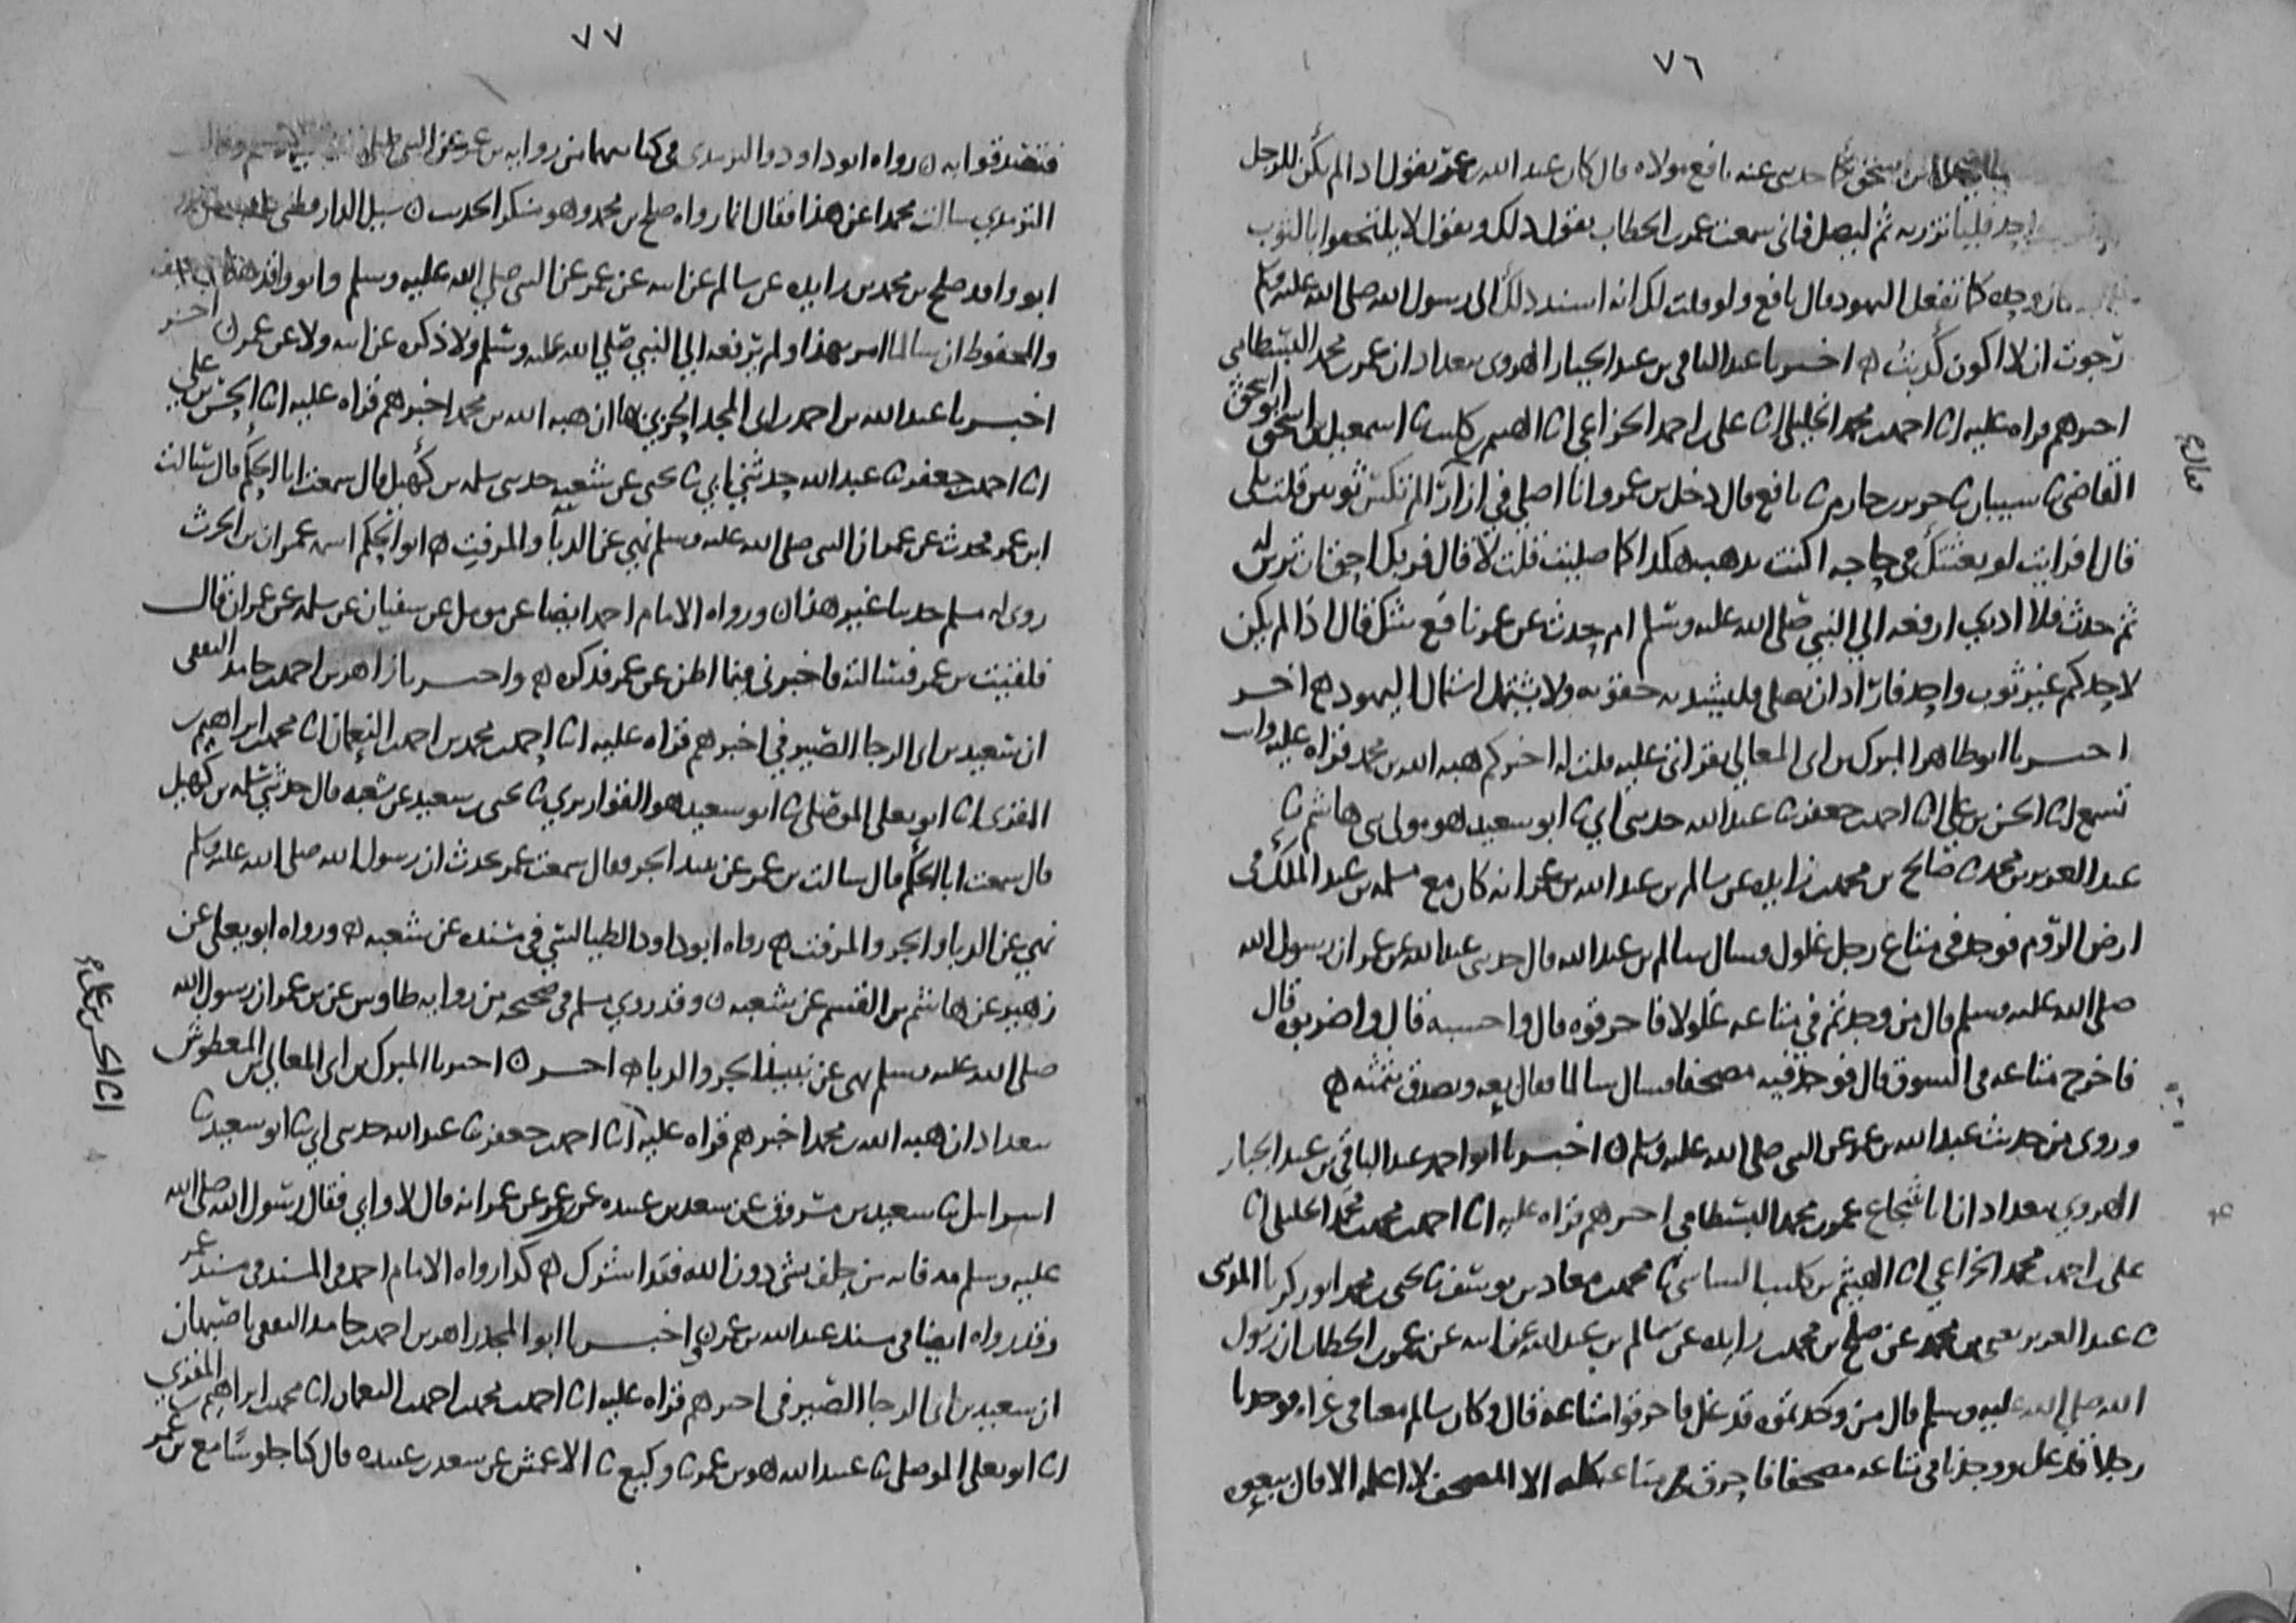 ٧٦
حدثني عنه نافع مولاه قال كان عبد الله بن عمر يقول إذا لم يكن للرجل
واحد فليأتزر به ثم ليصل فاني سمعت عمر بن الخطاب يقول ذلك ويقول لا يلتحفوا بالثوب
وحده كما تفعل اليهود قال نافع ولو قلت لك انه اسند ذلك الى رسول الله صلى الله عليه وسلم
رجوت ان لا اكون كذبت اخبرنا عبد الباقي بن عبد الجبار الهروي ببغداد ان عمر بن محمد البسطامي
اخبرهم قراه عليه انا احمد بن محمد الخليلي انا علي بن احمد الخزاعي انا الهيثم بن كليب ثنا اسمعيل بن اسحق
القاضي ثنا شيبان ثنا جرير بن حازم ثنا نافع قال دخل بن عمر وانا اصلي في ازار قال الم تكتس ثوبين قلت بلى
قال افرايت لو بعثتك في حاجه اكنت تذهب هكذا كما صليت قلت لا قال فربك احق ان تزين له
ثم حدث فلا ادري ارفعه الي النبي صلى الله عليه وسلم ام حدث عن عمر نافع شك قال اذا لم يكن
لاحدكم غير ثوب واحد فاراد ان يصلي فليشد به حقوه ولا يشتمل اشتمال اليهود اخر
اخبرنا ابو طاهر المبرك بن ابي المعالي بقراتي عليه قلت له اخبركم هبه الله بن محمد قراه عليه وانت
تسمع انا الحسن بن علي انا احمد بن جعفر ثنا عبد الله حدثني ابي ثنا ابو سعيد هو مولى بني هاشم ثنا
عبد العزيز بن محمد ثنا صالح بن محمد بن زايده عن سالم بن عبد الله بن عمر انه كان مع مسلمه بن عبد الملك في
ارض الروم فوجد في متاع رجل غلول فسال سالم بن عبد الله قال حدثني عبد الله عن عمر ان رسول الله
صلى الله عليه وسلم قال من وجدتم في متاعه غلولا فاحرقوه قال واحسبه قال واضربوه قال
فاخرج متاعه في السوق قال فوجد فيه مصحفا فسال سالما فقال بعه وتصدق بثمنه
وروى من حديث عبد الله بن عمر عن النبي صلى الله عليه وسلم اخبرنا ابو احمد عبد الباقي بن عبد الجبار
الهروي ببغداد ان ابا شجاع عمر بن محمد البسطامي اخبرهم قراه عليه انا احمد بن محمد بن محمد الخليلي انا
علي بن احمد بن محمد الخزاعي انا الهيثم بن كليب الشاشي ثنا محمد بن معاذ بن يوسف ثنا يحيى بن محمد ابو زكريا المروزي
ثنا عبد العزيز يعني بن محمد عن صلح بن محمد بن زايده عن سالم بن عبد الله عن ابيه عن عمر بن الخطاب ان رسول
الله صلى الله عليه وسلم قال من وجدتموه قد غل فاحرقوا متاعه قال وكان سالم معنا في غزاه فوجدنا
رجلا قد غل ووجدنا في متاعه مصحفا فاحرق متاعه كله الا المصحف لا اعلمه الا قال بيعوه
٧٧
فتصدقوا به رواه ابو داود والترمذي في كتابيهما من روايه بن عمر عن النبي
الترمذي سالت محمدا عن هذا فقال انما رواه صلح بن محمد وهو منكر الحديث سيل الدارقطني
ابو واقد صلح بن محمد بن زايده عن سالم عن ابيه عن عمر عن النبي صلى الله عليه وسلم وابو واقد هذا ضعيف
والمحفوظ ان سالما امر بهذا ولم يرفعه الي النبي صلى الله عليه وسلم ولا ذكره عن ابيه ولا عن عمر اخر
اخبرنا عبد الله بن احمد بن ابي المجد الحربي بها ان هبه الله بن محمد اخبرهم قراه عليه انا الحسن بن علي
انا احمد بن جعفر ثنا عبد الله حدثني ابي ثنا يحيى عن شعبه حدثني سلمه بن كهيل قال سمعت ابا الحكم قال سالت
ابن عمر فحدث عن عمر ان النبي صلى الله عليه وسلم نهي عن الدبا والمزفت ابو الحكم اسمه عمران بن الحرث
روى له مسلم حديثا غير هذا ورواه الامام احمد ايضا عن مومل عن سفيان عن سلمه عن عمران قال
فلقيت بن عمر فسالته فاخبرني فيما اظن عن عمر فذكره واخبرنا زاهر بن احمد بن حامد الثقفي
ان سعيد بن ابي الرجا الصيرفي اخبرهم قراه عليه انا احمد بن محمد بن احمد بن النعمان انا محمد بن ابراهيم بن
المقري انا ابو يعلى الموصلي ثنا ابو سعيد هو القواريري ثنا يحيى بن سعيد عن شعبه قال حدثني سلمه بن كهيل
قال سمعت ابا الحكم قال سالت بن عمر عن نبيذ الجر فقال سمعت عمر يحدث ان رسول الله صلى الله عليه وسلم
نهي عن الدبا والجر والمزفت رواه ابو داود الطيالسي في مسنده عن شعبه ورواه ابو يعلى عن
زهير عن هاشم بن القسم عن شعبه وقد روي مسلم في صحيحه من روايه طاوس عن بن عمر ان رسول الله
صلى الله عليه وسلم نهى عن نبيذ الجر والدبا اخر اخبرنا المبرك بن ابي المعالي بن المعطوش
ببغداد ان هبه الله بن محمد اخبرهم قراه عليه انا احمد بن جعفر ثنا عبد الله حدثني ابي ثنا ابو سعيد ثنا
اسرائيل ثنا سعيد بن مسروق عن سعد بن عبيده عن بن عمر عن عمر انه قال لا وابي فقال رسول الله صلى الله
عليه وسلم مه فانه من حلف بشي دون الله فقد اشرك كذا رواه الامام احمد في المسند في مسند عمر
وقد رواه ايضا في مسند عبد الله بن عمر اخبرنا ابو المجد زاهر بن احمد بن حامد الثقفي باصبهان
ان سعيد بن ابي الرجا الصيرفي اخبرهم قراه عليه انا احمد بن محمد بن احمد بن النعمان انا محمد بن ابراهيم بن المقري
انا ابو يعلى الموصلي ثنا عبيد الله هو بن عمر ثنا وكيع ثنا الاعمش عن سعد بن عبيده قال كنا جلوسا مع بن عمر
انا الحسن بن علي